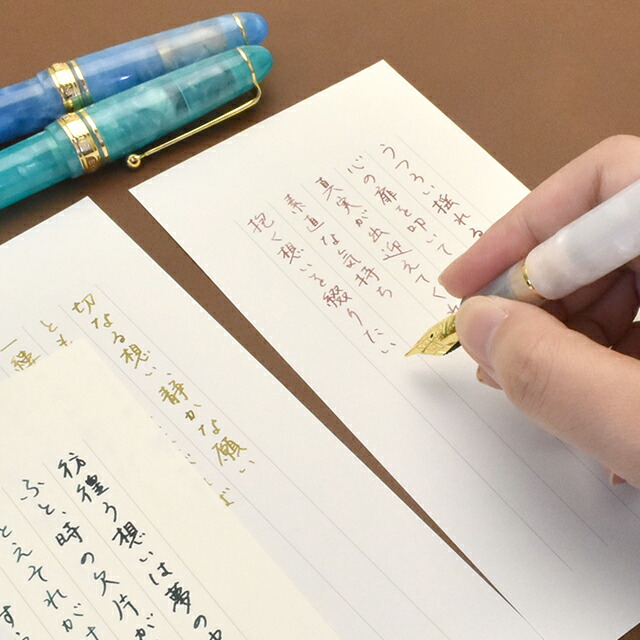 うつろい揺れる
心の扉を叩いて
真実が出迎えてくれ
素直な気持ち
抱く想いを綴りたい
切なる想い、静かな願い
と
一
彷徨う想いは夢の中
ふと、時の欠片が
とえそれが